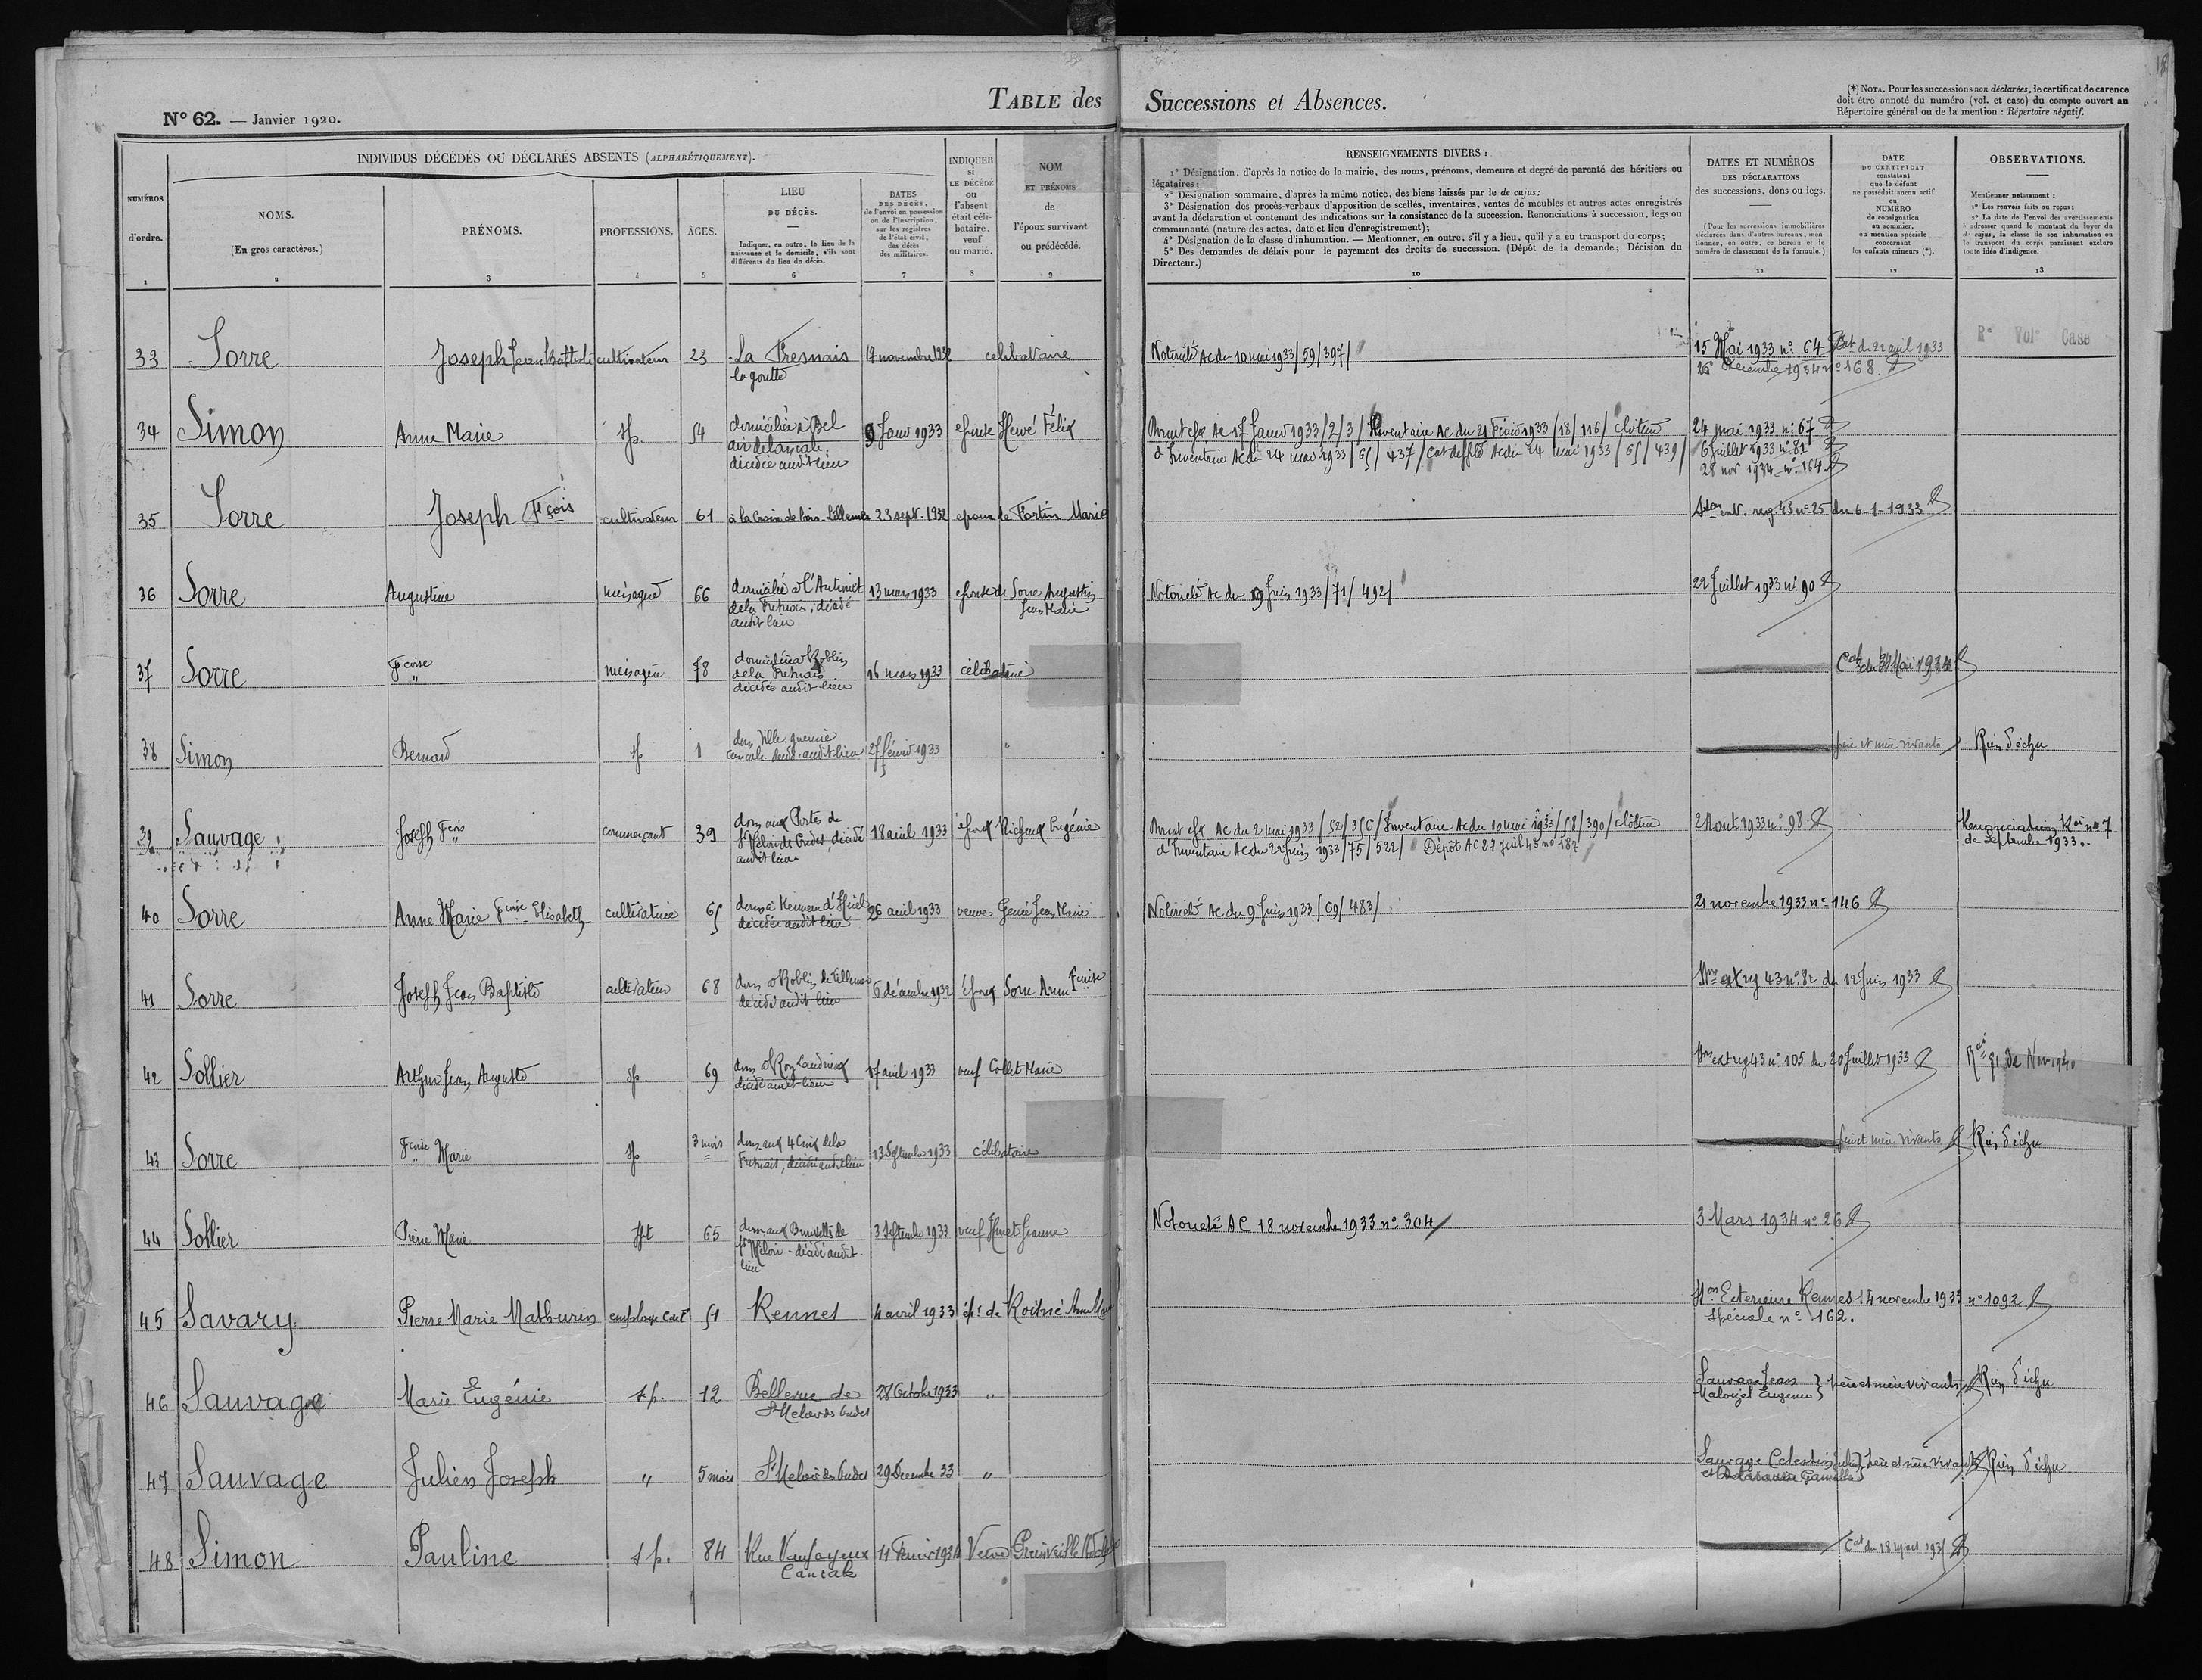 18
TABLE des Successions et Absences.
Nº 62. — Janvier 1920.
(*) NOTA. Pour les successions non déclarées, le certificat de carence
doit être annoté du numéro (vol. et case) du compte ouvert au
Répertoire général ou de la mention : Répertoire négatif.
NUMÉROS
d'ordre.
1
INDIVIDUS DÉCÉDÉS OU DÉCLARÉS ABSENTS (ALPHABÉTIQUEMENT).
NOMS.
(En gros caractères.)
2
PRÉNOMS.
3
PROFESSIONS.
4
ÂGES.
5
LIEU
DU DÉCÈS.
Indiquer, en outre, le lieu de la
naissance et le domicile, s'ils sont
différents du lieu du décès.
6
DATES
DES DÉCÈS,
de l'envoi en possession
ou de l'inscription,
sur les registres
de l'état civil,
des décès
des militaires.
7
INDIQUER
si
LE DÉCÉDÉ
ou
l'absent
était céli-
bataire,
veuf
ou marié.
8
NOM
ET PRÉNOMS
de
l'époux survivant
ou prédécédé.
9
RENSEIGNEMENTS DIVERS :
1° Désignation, d'après la notice de la mairie, des noms, prénoms, demeure et degré de parenté des héritiers ou
légataires;
2° Désignation sommaire, d'après la même notice, des biens laissés par le de cujus;
3° Désignation des procès-verbaux d'apposition de scellés, inventaires, ventes de meubles et autres actes enregistrés
avant la déclaration et contenant des indications sur la consistance de la succession. Renonciations à succession, legs ou
communauté (nature des actes, date et lieu d'enregistrement);
4° Désignation de la classe d'inhumation. — Mentionner, en outre, s'il y a lieu, qu'il y a eu transport du corps;
5° Des demandes de délais pour le payement des droits de succession. (Dépôt de la demande; Décision du
Directeur.)
10
DATES ET NUMÉROS
DES DÉCLARATIONS
des successions, dons ou legs.
(Pour les successions immobilières
déclarées dans d'autres bureaux, men-
tionner, en outre, ce bureau et le
numéro de classement de la formule.)
11
DATE
DU CERTIFICAT
constatant
que le défunt
ne possédait aucun actif
ou
NUMÉRO
de consignation
au sommier,
ou mention spéciale
concernant
les enfants mineurs (*).
12
OBSERVATIONS.
Mentionner notamment :
1° Les renvois faits ou reçus;
2° La date de l'envoi des avertissements
à adresser quand le montant du loyer du
de cujus, la classe de son inhumation ou
le transport du corps paraissent exclure
toute idée d'indigence.
13
33 Sorre Joseph Jean Battiste cultivateur 23 La Fresnais 17 novembre 1932 celibataire Notoriété AC du 10 mai 1933/59/397/ 15 Mai 1933 nº 64 Cat du 22 avril 1933 Rº Volº Case
la goutte 26 Decembre 1934 nº 168
34 Simon Anne Marie sp. 54 domiciliée à Bel 9 Janv 1933 epouse Hervé Félix AC 17 Janv 1933/2/3/ Inventaire AC du 21 Fevrier 1933/18/116/ Clôture 24 mai 1933 nº 67
air de Cancale d'Inventaire AC du 24 mai 1933/65/437/ AC du 24 mai 1933/65/439/ 6 Juillet 1933 nº 81
décédée audit lieu 28 nov 1934 nº 164
35 Sorre Joseph Fçois cultivateur 61 à la Croix de bois Lillemer 23 sept. 1932 epoux de Fortin Marie reg. 43 nº 25 du 6-1-1933
36 Sorre Augustine ménagère 66 13 mars 1933 epouse de Sorre Augustin Notoriété AC du 9 Juin 1933/71/492/ 22 Juillet 1933 nº 90
de la Fresnais, décédé Jean Marie
audit lieu
37 Sorre Fçoise ménagère 78 domiciliée à Roblin 16 mars 1933 célibataire Cat du 31 Mai 1934
de la Fresnais
décédée audit lieu
38 Simon Bernard sp 1 dom Ville guerrie 27 février 1933 " père et mère vivants Rien d'échu
Cancale décédé audit lieu
39 Sauvage Joseph Fçois commerçant 39 dom aux Portes de 18 avril 1933 époux Richeux Eugénie AC du 2 mai 1933/52/356/ Inventaire AC du 10 mai 1933/58/390/ Clôture 2 Aout 1933 nº 98 Renonciation nº 7
St Méloir des Ondes, décédé d'Inventaire AC du 22 Juin 1933/75/522/ Dépôt AC 27 juil 43 nº 187 de Septembre 1933.
audit lieu
40 Sorre Anne Marie Fçoise Elisabeth cultivatrice 65 26 avril 1933 veuve Genée Jean Marie Notoriété AC du 9 Juin 1933/69/483/ 21 novembre 1933 nº 146
décédée audit lieu
41 Sorre Joseph Jean Baptiste cultivateur 68 dom à Roblin de Lillemer 6 décembre 1932 époux Sorre Anne Fçoise reg 43 nº 82 du 12 Juin 1933
décédé audit lieu
42 Sollier Arthur Jean Auguste sp. 69 dom à Roz Landrieux 17 avril 1933 veuf Collet Marie ext reg 43 nº 105 du 20 Juillet 1933 de Nov 1940
décédé audit lieu
43 Sorre Fçoise Marie sp 3 mois dom aux 4 Croix de la 13 Septembre 1933 célibataire père et mère vivants Rien d'échu
Fresnais, décédée audit lieu
44 Sollier Pierre Marie 65 dom aux Brunettes de 3 Septembre 1933 veuf Huet Jeanne Notoriété AC 18 novembre 1933 nº 304/ 3 Mars 1934 nº 26
St Méloir - décédé audit
lieu
45 Savary Pierre Marie Mathurin employe 51 Rennes 4 avril 1933 Exterieure Rennes 14 novembre 1933 nº 1092
spéciale nº 162.
46 Sauvage Marie Eugénie s.p. 12 Bellevue de 28 Octobre 1933 " Sauvage Jean } père et mère vivants Rien d'échu
St Meloir des Ondes Eugenie
47 Sauvage Julien Joseph " 5 mois St Meloir des Ondes 29 Decembre 33 " Sauvage Celestin } père et mère vivants Rien d'échu
48 Simon Pauline s.p. 84 Rue Vaufoyeux 11 Fevrier 1934 Veuve Cat du 18 mars 1935
Cancale